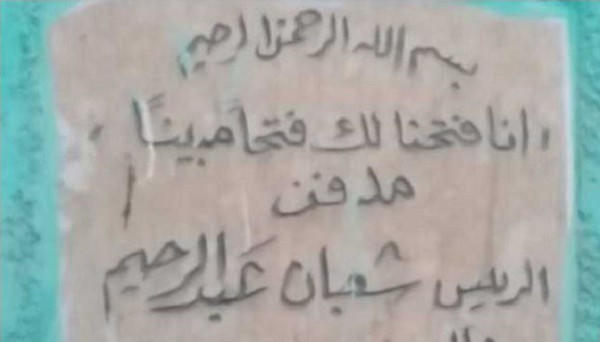 بسم الله الرحمن الرحيم
انا فتحنا لك فتحا مبينًا
مدفن
الريس شعبان عَبد الرحيم